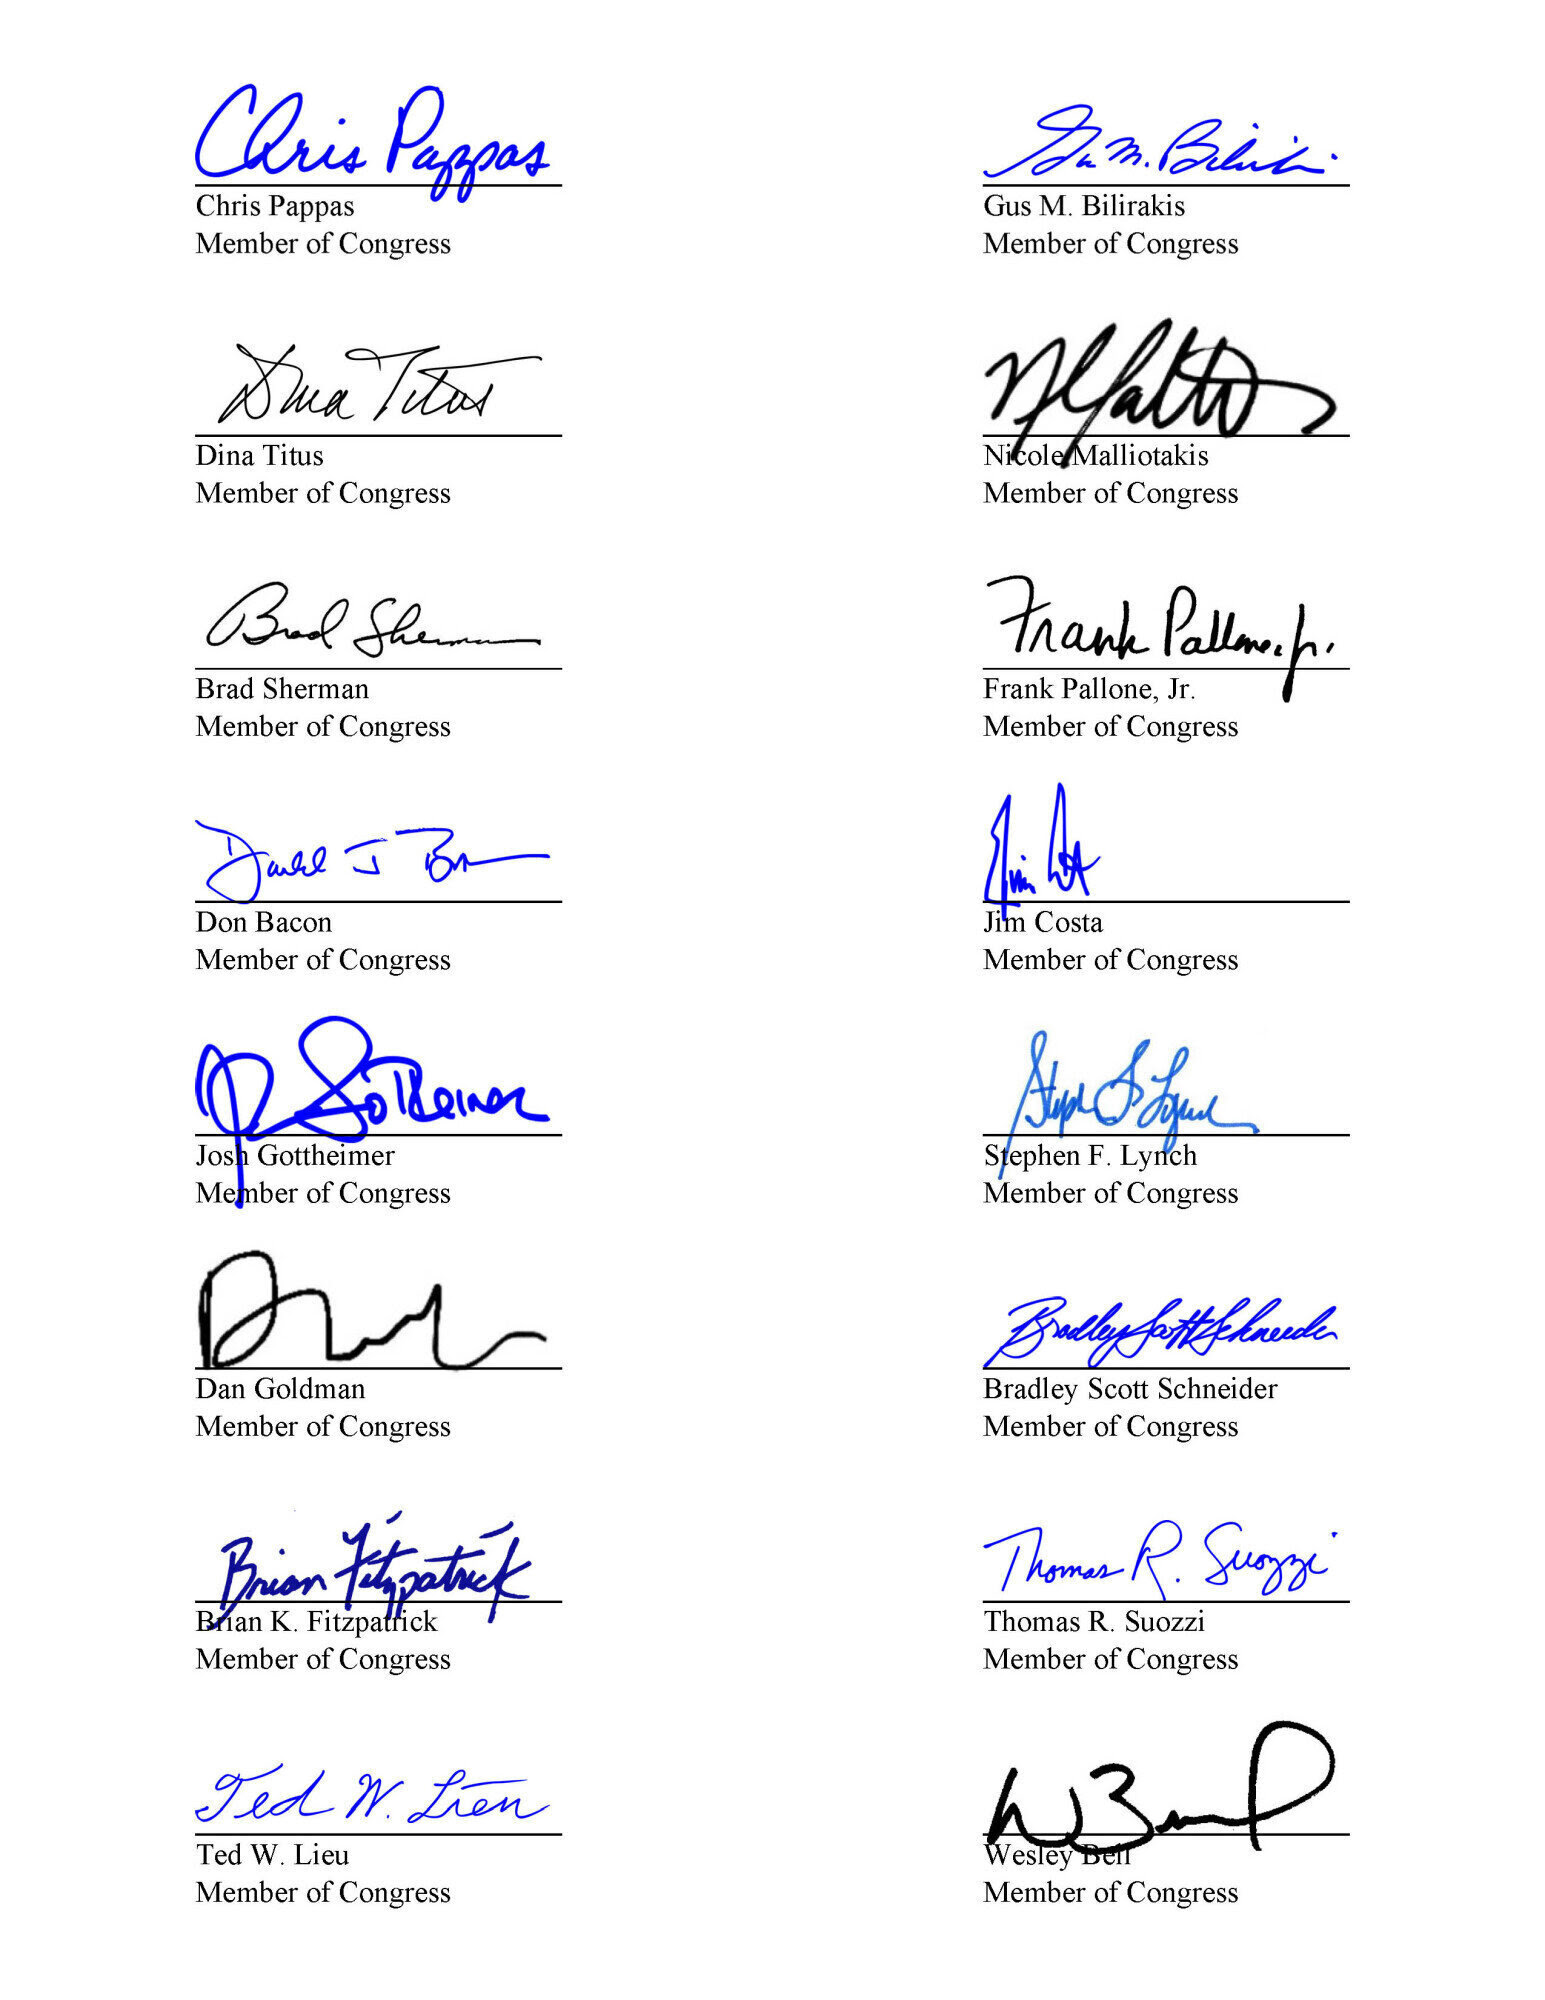 Chris Pappas
Gus M. Bilirakis
Chris Pappas
Gus M. Bilirakis
Member of Congress
Member of Congress
Dina Titus
Dina Titus
Nicole Malliotakis
Member of Congress
Member of Congress
Brad Sherman
Frank Pallone, Jr.
Brad Sherman
Frank Pallone, Jr.
Member of Congress
Member of Congress
Don Bacon
Jim Costa
Member of Congress
Member of Congress
Josh Gottheimer
Stephen F. Lynch
Member of Congress
Member of Congress
Bradley Scott Schneider
Dan Goldman
Bradley Scott Schneider
Member of Congress
Member of Congress
Brian Fitzpatrick
Thomas R. Suozzi
Brian K. Fitzpatrick
Thomas R. Suozzi
Member of Congress
Member of Congress
Ted W. Lieu
Ted W. Lieu
Wesley Bell
Member of Congress
Member of Congress